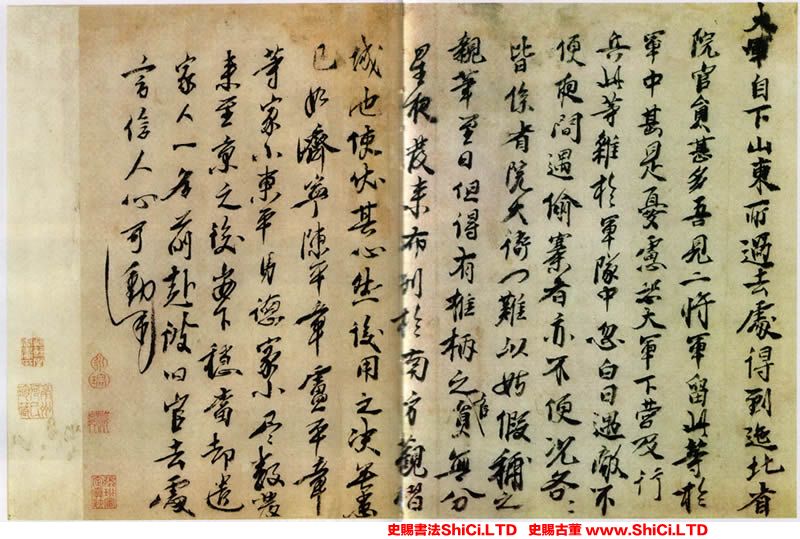 大軍自下山東所過去處得到迤北省
院官員甚多吾見二將軍留此等於
軍中甚是憂慮恐大軍下營及行
兵此等雜於軍隊中忽白日遇敵不
便夜間遇偷寨者亦不便況各各
皆係省院大衙門難以姑假補之
親筆至日但得有椎柄之官員無分
星夜發來布列於南方觀玿
城池使伏其心然後用之決無患
已如濟寧陳平章盧平章
等家小東平馬德家小盡數發
來至京之後安下穩當却遣
家人一名前赴彼舊官去處
言信人心可動
史賜書法ShiCi.LTD 史賜古董 www.ShiCi.LTD